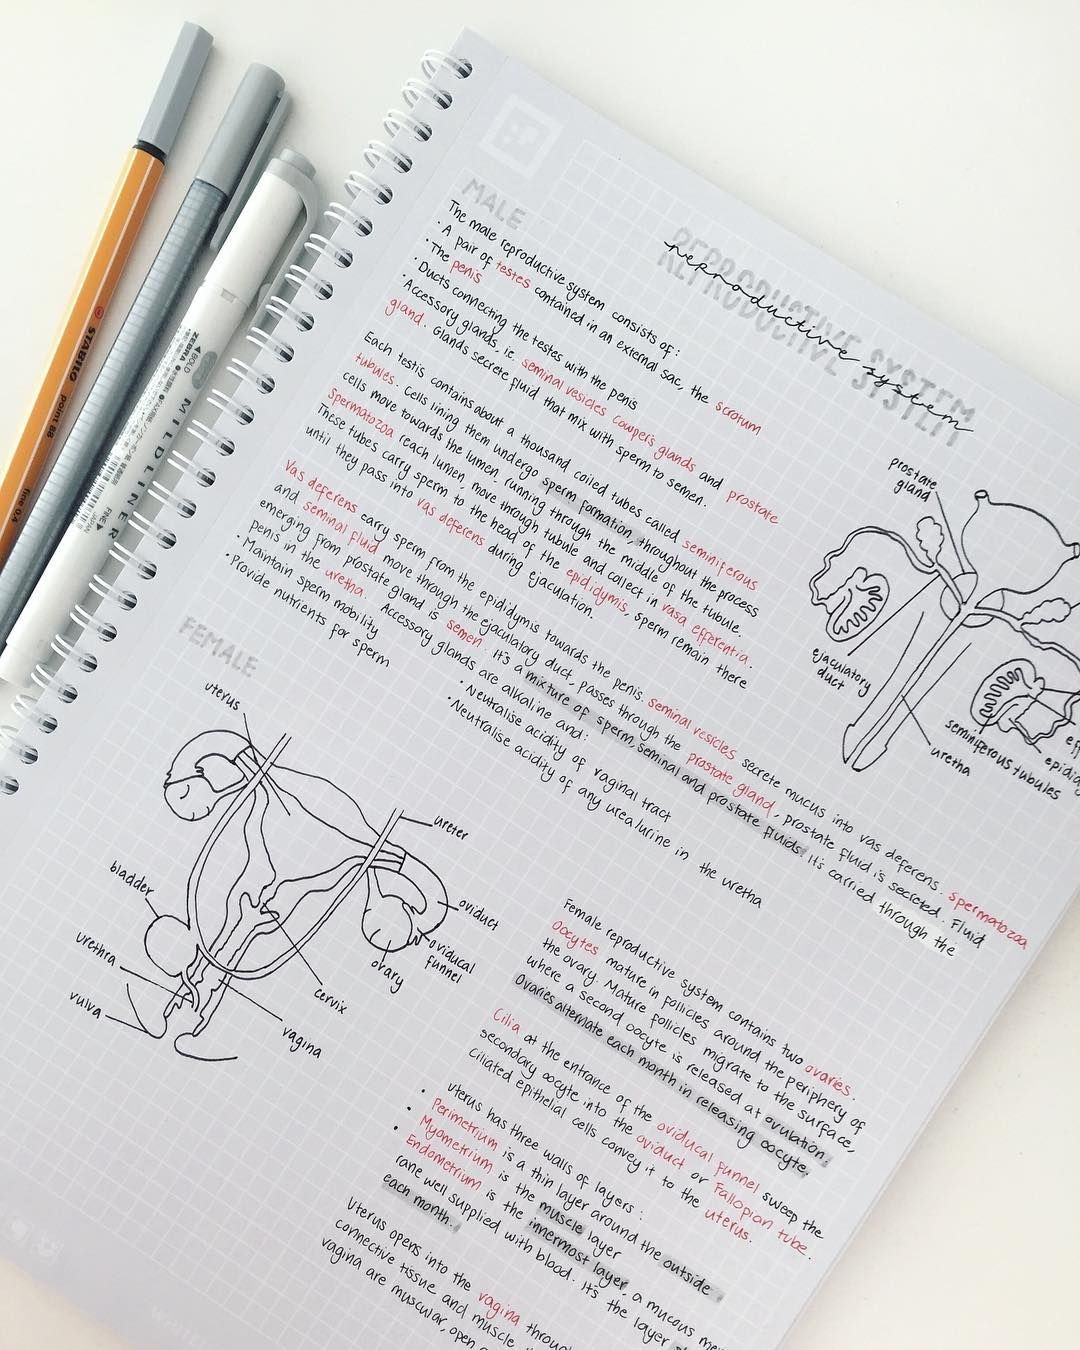 REPRODUCTIVE SYSTEM
reproductive system
MALE
The male reproductive system consists of:
· A pair of testes contained in an external sac, the scrotum
· The penis
· Ducts connecting the testes with the penis
· Accessory glands, ie. seminal vesicles cowper's glands and prostate
gland. Glands secrete fluid that mix with sperm to semen.
Each testis contains about a thousand coiled tubes called seminiferous
tubules. Cells lining them undergo sperm formation, throughout the process
cells move towards the lumen, running through the middle of the tubule.
Spermatozoa reach lumen, move through tubule and collect in vasa efferentia.
These tubes carry sperm to the head of the epididymis, sperm remain there
until they pass into vas deferens during ejaculation.
Vas deferens carry sperm from the epididymis towards the penis. seminal vesicles secrete mucus into vas deferens. Spermatozoa
and seminal fluid move through the ejaculatory duct, passes through the prostate gland, prostate fluid is secreted. Fluid
emerging from prostate gland is semen. It's a mixture of sperm, seminal and prostate fluids. It's carried through the
penis in the uretha. Accessory glands are alkaline and:
· Maintain sperm mobility
· Provide nutrients for sperm
· Neutralise acidity of vaginal tract
· Neutralise acidity of any urea/urine in the uretha
prostane
gland
ejaculatory
duct
uretha
seminiferous tubules
FEMALE
uterus
ureter
oviduct
oviducal
funnel
ovary
bladder
urethra
vulva
cervix
vagina
Female reproductive system contains two ovaries.
Oocytes mature in follicles around the periphery of
the ovary. Mature follicles migrate to the surface,
where a second oocyte is released at ovulation.
Ovaries alternate each month in releasing oocyte.
Cilia at the entrance of the oviducal funnel sweep the
secondary oocyte into the oviduct or Fallopian tube.
Ciliated epithelial cells convey it to the uterus.
Uterus has three walls of layers:
· Perimetrium is a thin layer around the outside
· Myometrium is the muscle layer
· Endometrium is the innermost layer, a mucous
rane well supplied with blood. Its the layer
each month.
Uterus opens into the vagina through
connective tissue and muscle
vagina are muscular, open
STABILO
point 88
fine 0.4
ZEBRA
BOLD
MILDLINER
FINE
JAPAN